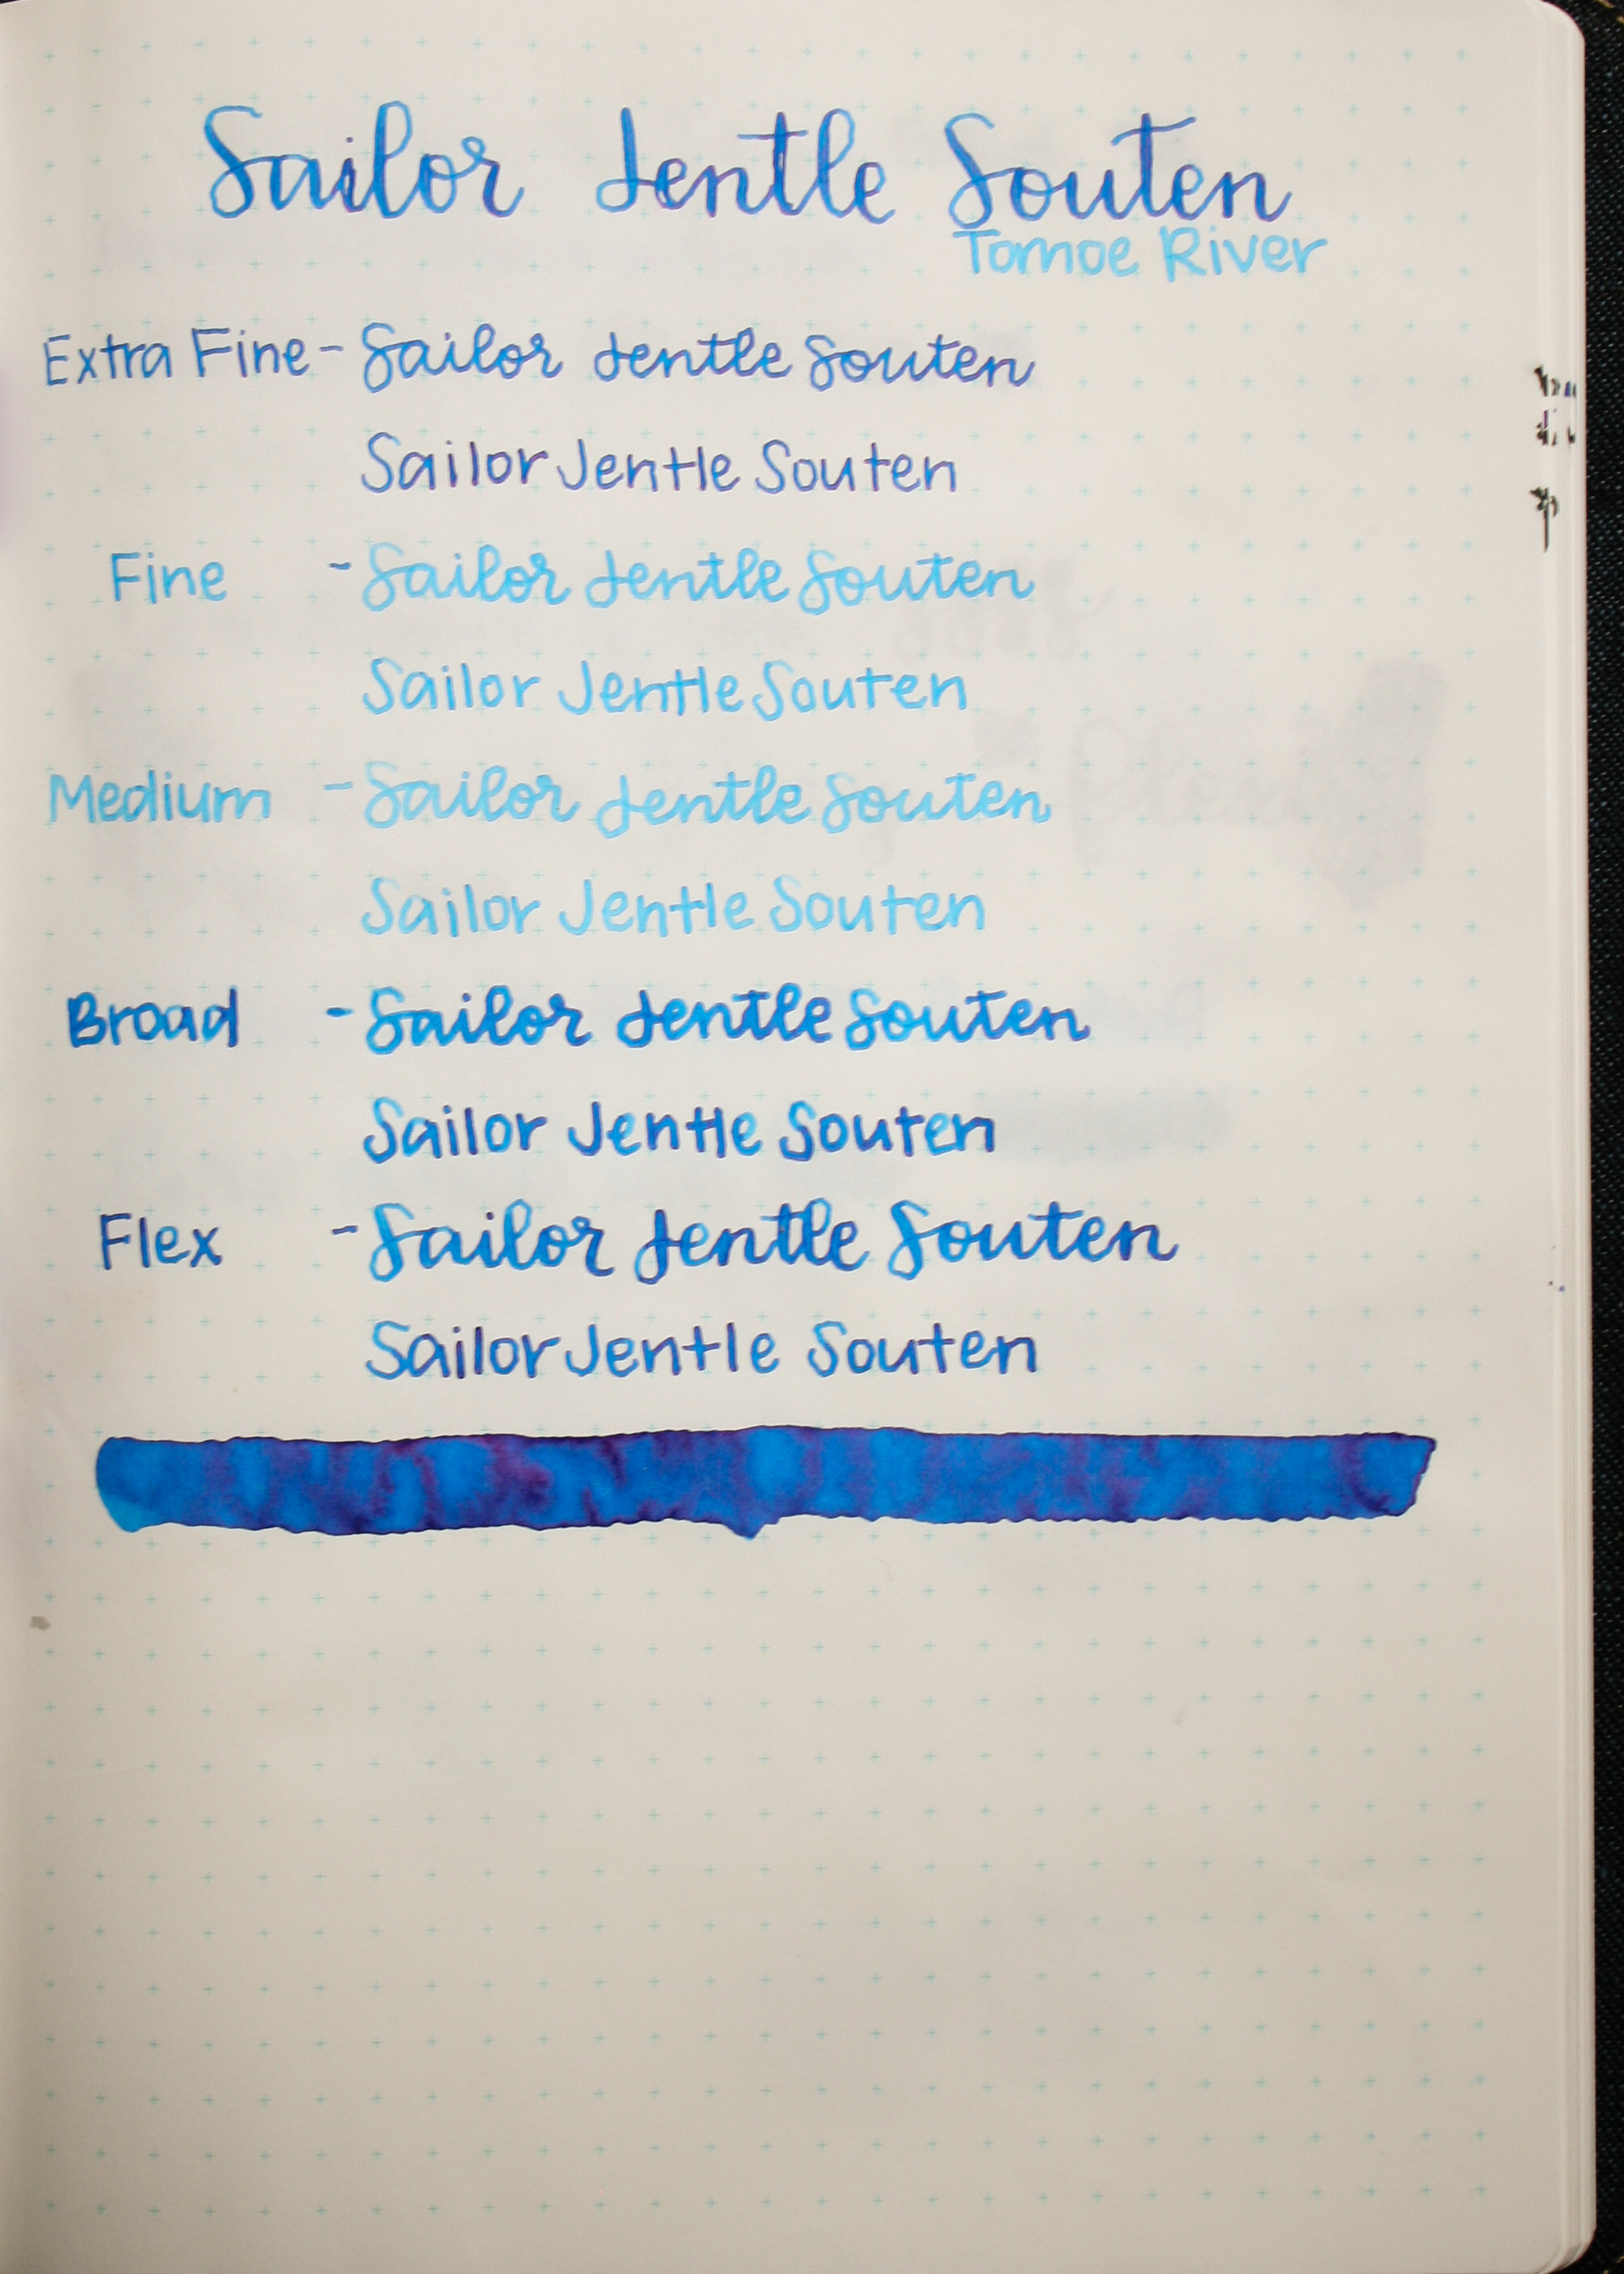 Sailor Jentle Souten
Tomoe River
Extra Fine - Sailor Jentle Souten
Sailor Jentle Souten
Fine - Sailor Jentle Souten
Sailor Jentle Souten
Medium - Sailor Jentle Souten
Sailor Jentle Souten
Broad - Sailor Jentle Souten
Sailor Jentle Souten
Flex - Sailor Jentle Souten
Sailor Jentle Souten